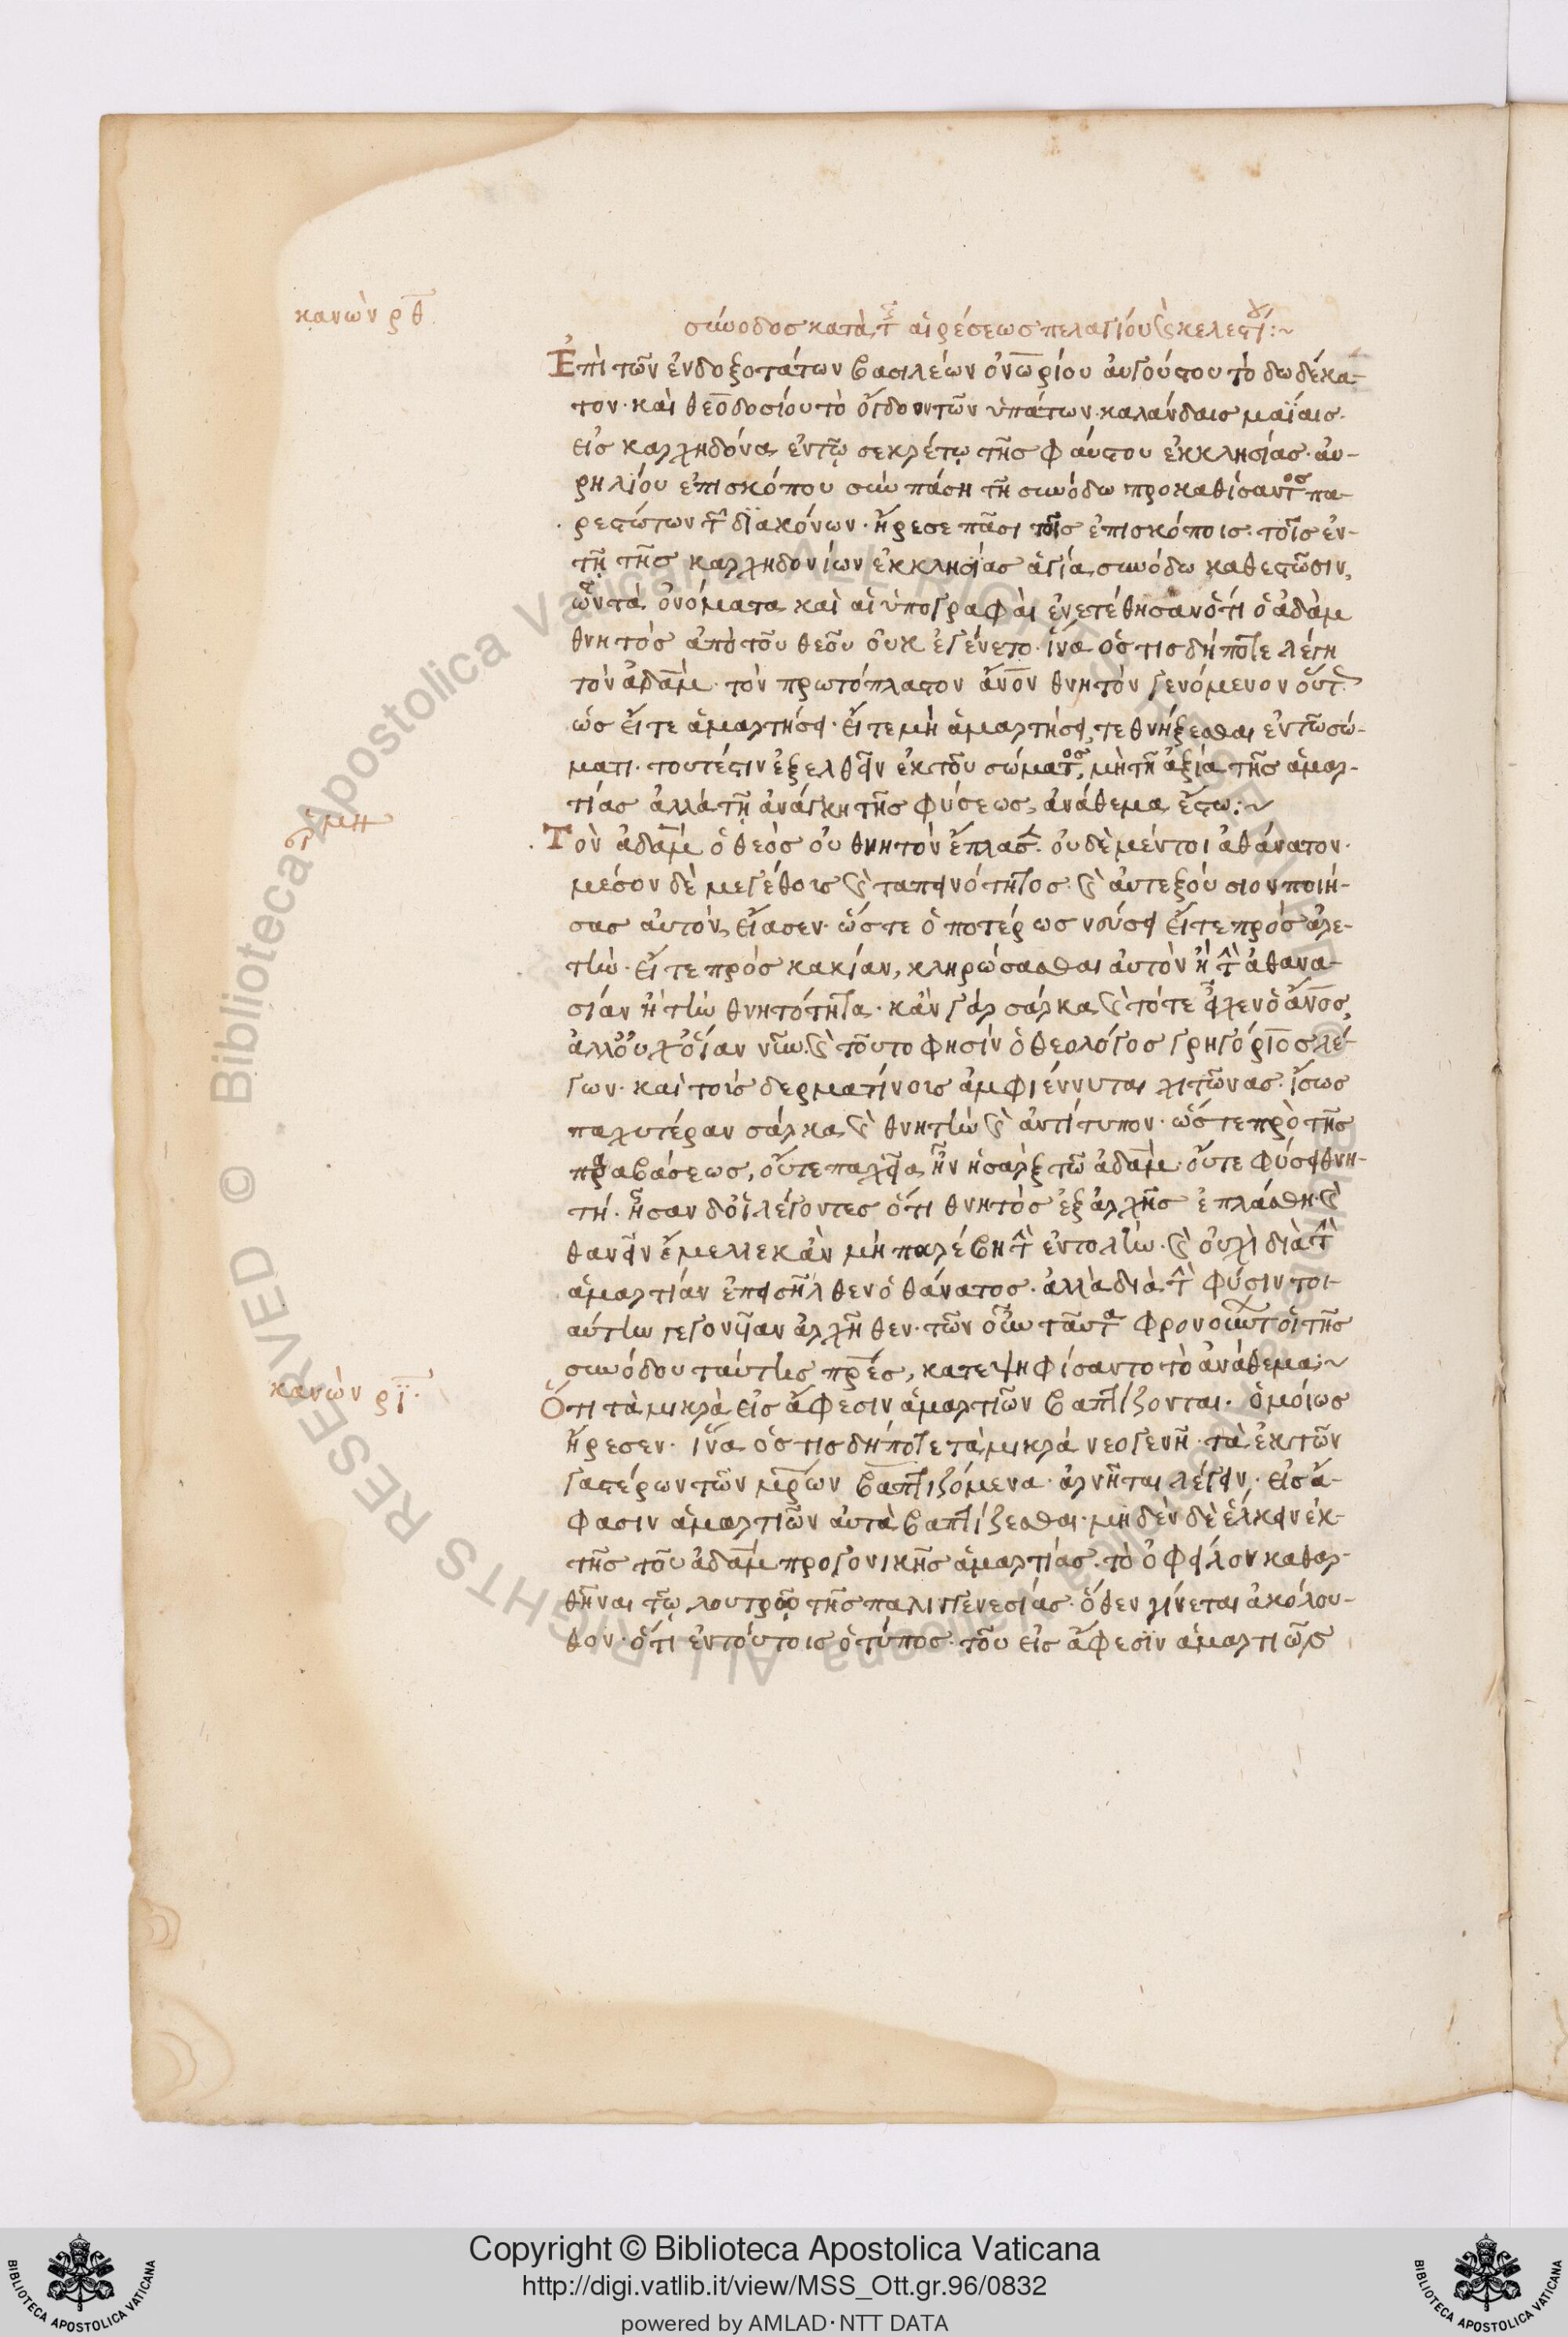 κανὼν ρθ
σύνοδος κατὰ τ αἱρέσεως πελαγίου κ κελεστί:~
Ἐπὶ τῶν ἐνδοξοτάτων βασιλέων ὀνωρίου ἀυγούστου τὸ δωδέκα-
τον· καὶ θεοδοσίου τὸ ὄγδοον τῶν ὑπάτων· καλάνδαις μαΐαις·
εἰς καρχηδόνα ἐν τῷ σεκρέτῳ τῆς φάυστου ἐκκλησίας· ἀυ-
ρηλίου ἐπισκόπου σὺν πάση τῆ συνόδω προκαθίσαντος πα-
ρεστώτων τ διακόνων· ἤρεσε πᾶσι τοῖς ἐπισκόποις· τοῖς ἐν-
τῇ τῆς καρχηδονίων ἐκκλησίας ἁγία συνόδω καθεστῶσιν,
ὧν τὰ ὀνόματα καὶ αἱ ὑπογραφὰι ἐνετέθησαν ὅτι ὁ ἀδὰμ
θνητὸς ἀπὸ τοῦ θεοῦ οὐκ ἐγένετο· ἵνα ὅς τις δήποτε λέγη
τὸν ἀδὰμ· τὸν πρωτόπλαστον ἄνον θνητὸν γενόμενον οὕτ
ὡς εἴτε ἁμαρτήσει· εἴτε μὴ ἁμαρτήσει, τεθνήξεσθαι ἐν τῶ σώ-
ματι· τουτέστιν ἐξελθεῖν ἐκ τοῦ σώματος, μὴ τῆ ἀξία τῆς ἁμαρ-
τίας ἀλλὰ τῇ ἀνάγκη τῆς φύσεως, ἀνάθεμα ἔστω:~
Τὸν ἀδὰμ ὁ θεὸς οὐ θνητὸν ἔπλασ· οὐδὲ μέντοι ἀθάνατον·
μέσον δὲ μεγέθους κ ταπεινότητος· κ ἀυτεξούσιον ποιή-
σας ἀυτὸν, εἴασεν· ὥστε ὁποτέρως νεύσει εἴτε πρὸς ἀρε-
τὴν· εἴτε πρὸς κακίαν, κληρώσασθαι ἀυτὸν ἢ τ ἀθανα-
σίαν ἢ τὴν θνητότητα· κἂν γὰρ σάρκα κ τότε εἶχεν ὁ ἄνος,
ἀλλ' οὐχ' οἵαν νῦν· κ τοῦτο φησὶν ὁ θεολόγος γρηγόριος λέ-
γων· καὶ τοὺς δερματίνους ἀμφιέννυται χιτῶνας· ἴσως
παχυτέραν σάρκα κ θνητὴν κ ἀντίτυπον· ὥστε πρὸ τῆς
παραβάσεως, οὔτε παχεῖα ἦν ἡ σὰρξ τῶ ἀδὰμ· οὔτε φύσει θνη-
τή· ἦσαν δ' οἱ λέγοντες ὅτι θνητὸς ἐξ ἀρχῆς ἐπλάσθη· κ
θανεῖν ἔμελλε κἂν μὴ παρέβη τ ἐντολὴν· κ οὐχὶ διὰ τ
ἁμαρτίαν ἐπεισῆλθεν ὁ θάνατος· ἀλλὰ διὰ τ φύσιν τοι-
αύτην γεγονεῖαν ἀρχῆθεν· τῶν οὖν ταῦτα φρονούντ οἱ τῆς
συνόδου ταύτης πρες, κατεψηφίσαντο τὸ ἀνάθεμα:~
κανὼν ρι·
Ὅτι τὰ μικρὰ εἰς ἄφεσιν ἁμαρτιῶν βαπτίζονται· ὁμοίως
ἤρεσεν· ἵνα ὅς τις δήποτε τὰ μικρὰ νεογενῆ· τὰ ἐκ τῶν
γαστέρων τῶν μρων βαπτιζόμενα· ἀρνῆται λέγειν, εἰς ἄ-
φασιν ἁμαρτιῶν ἀυτὰ βαπτίζεσθαι· μηδὲν δὲ ἕλκειν ἐκ-
τῆς τοῦ ἀδὰμ προγονικῆς ἁμαρτίας· τὸ ὀφεῖλον καθαρ-
θῆναι τῷ λουτρῷ τῆς παλιγγενεσίας· ὅθεν γίνεται ἀκόλου-
θον· ὅτι ἐν τούτοις ὁ τύπος· τοῦ εἰς ἄφεσιν ἁμαρτιῶν